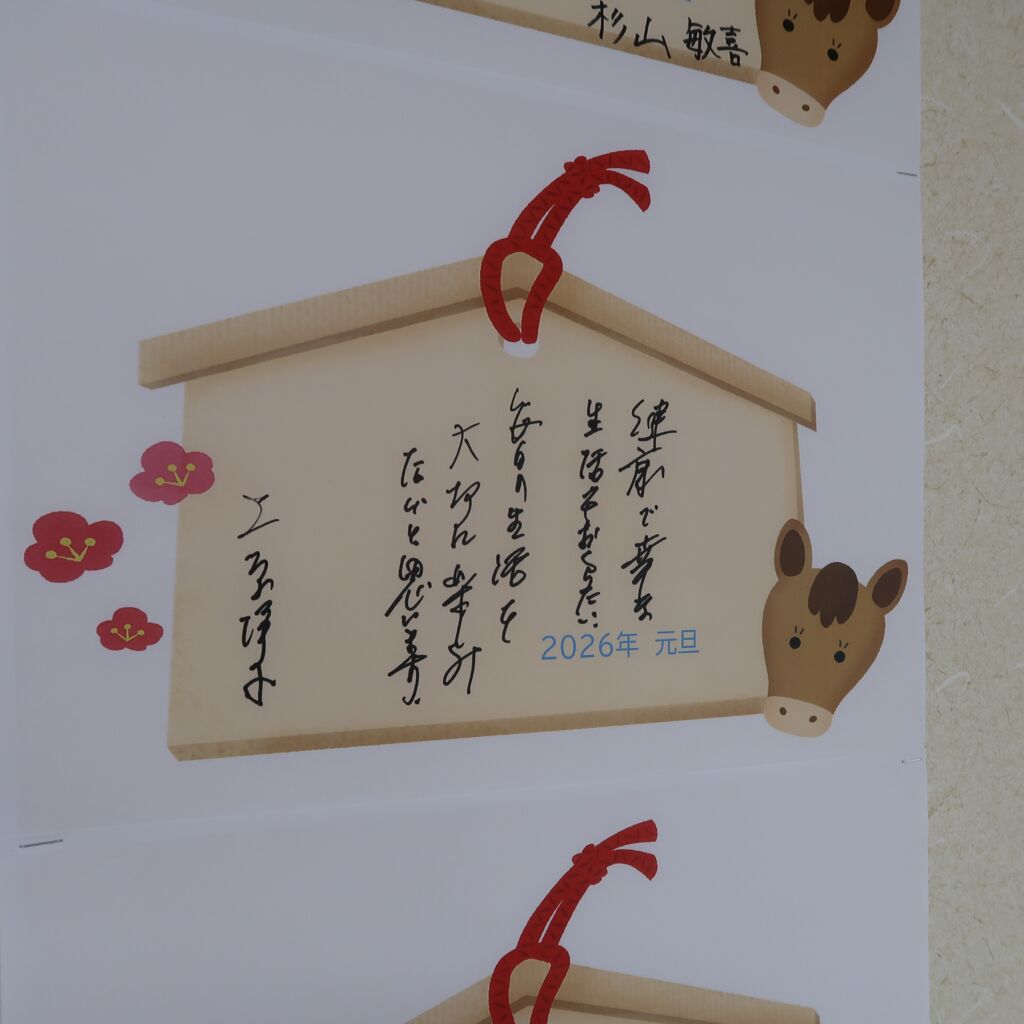 杉山 敏喜
健康で幸せな
生活をおくりたい
毎日の生活を
大切に楽しみ
たいと思います。
2026年 元旦